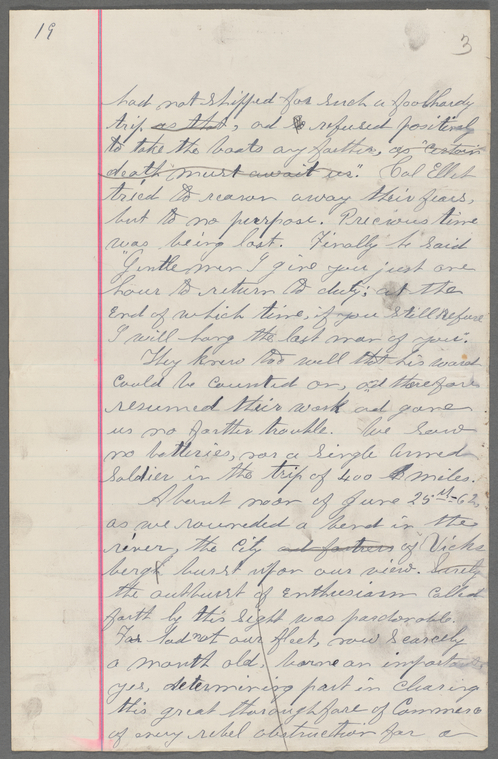 19
3
had not shipped for such a foolhardy
trip as that, and refused positively
to take the boats any farther, as "certain
death must await us". Col Ellet
tried to reason away their fears,
but to no purpose. Precious time
was being lost. Finally he said
"Gentlemen I give you just one
hour to return to duty; at the
end of which time, if you still refuse
I will hang the last man of you".
They knew too well that his word
could be counted on, and therefore
resumed their work and gave
us no farther trouble. We saw
no batteries, nor a single armed
soldier in the trip of 400 miles.
About noon of June 25th-62,
as we rounded a bend in the
river, the city and fortress of Vicks
berg burst upon our view. Surely
the outburst of enthusiasm called
forth by this sight was pardonable.
For had not our fleet, now scarcely
a month old, borne an important
yes, determining part in clearing
this great thoroughfare of Commerce
of every rebel obstruction for a